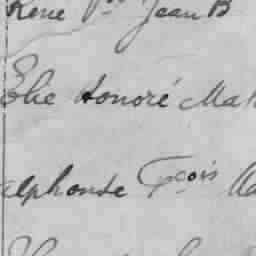 René Jean B
Elie Honoré Mat
alphonse Fçois